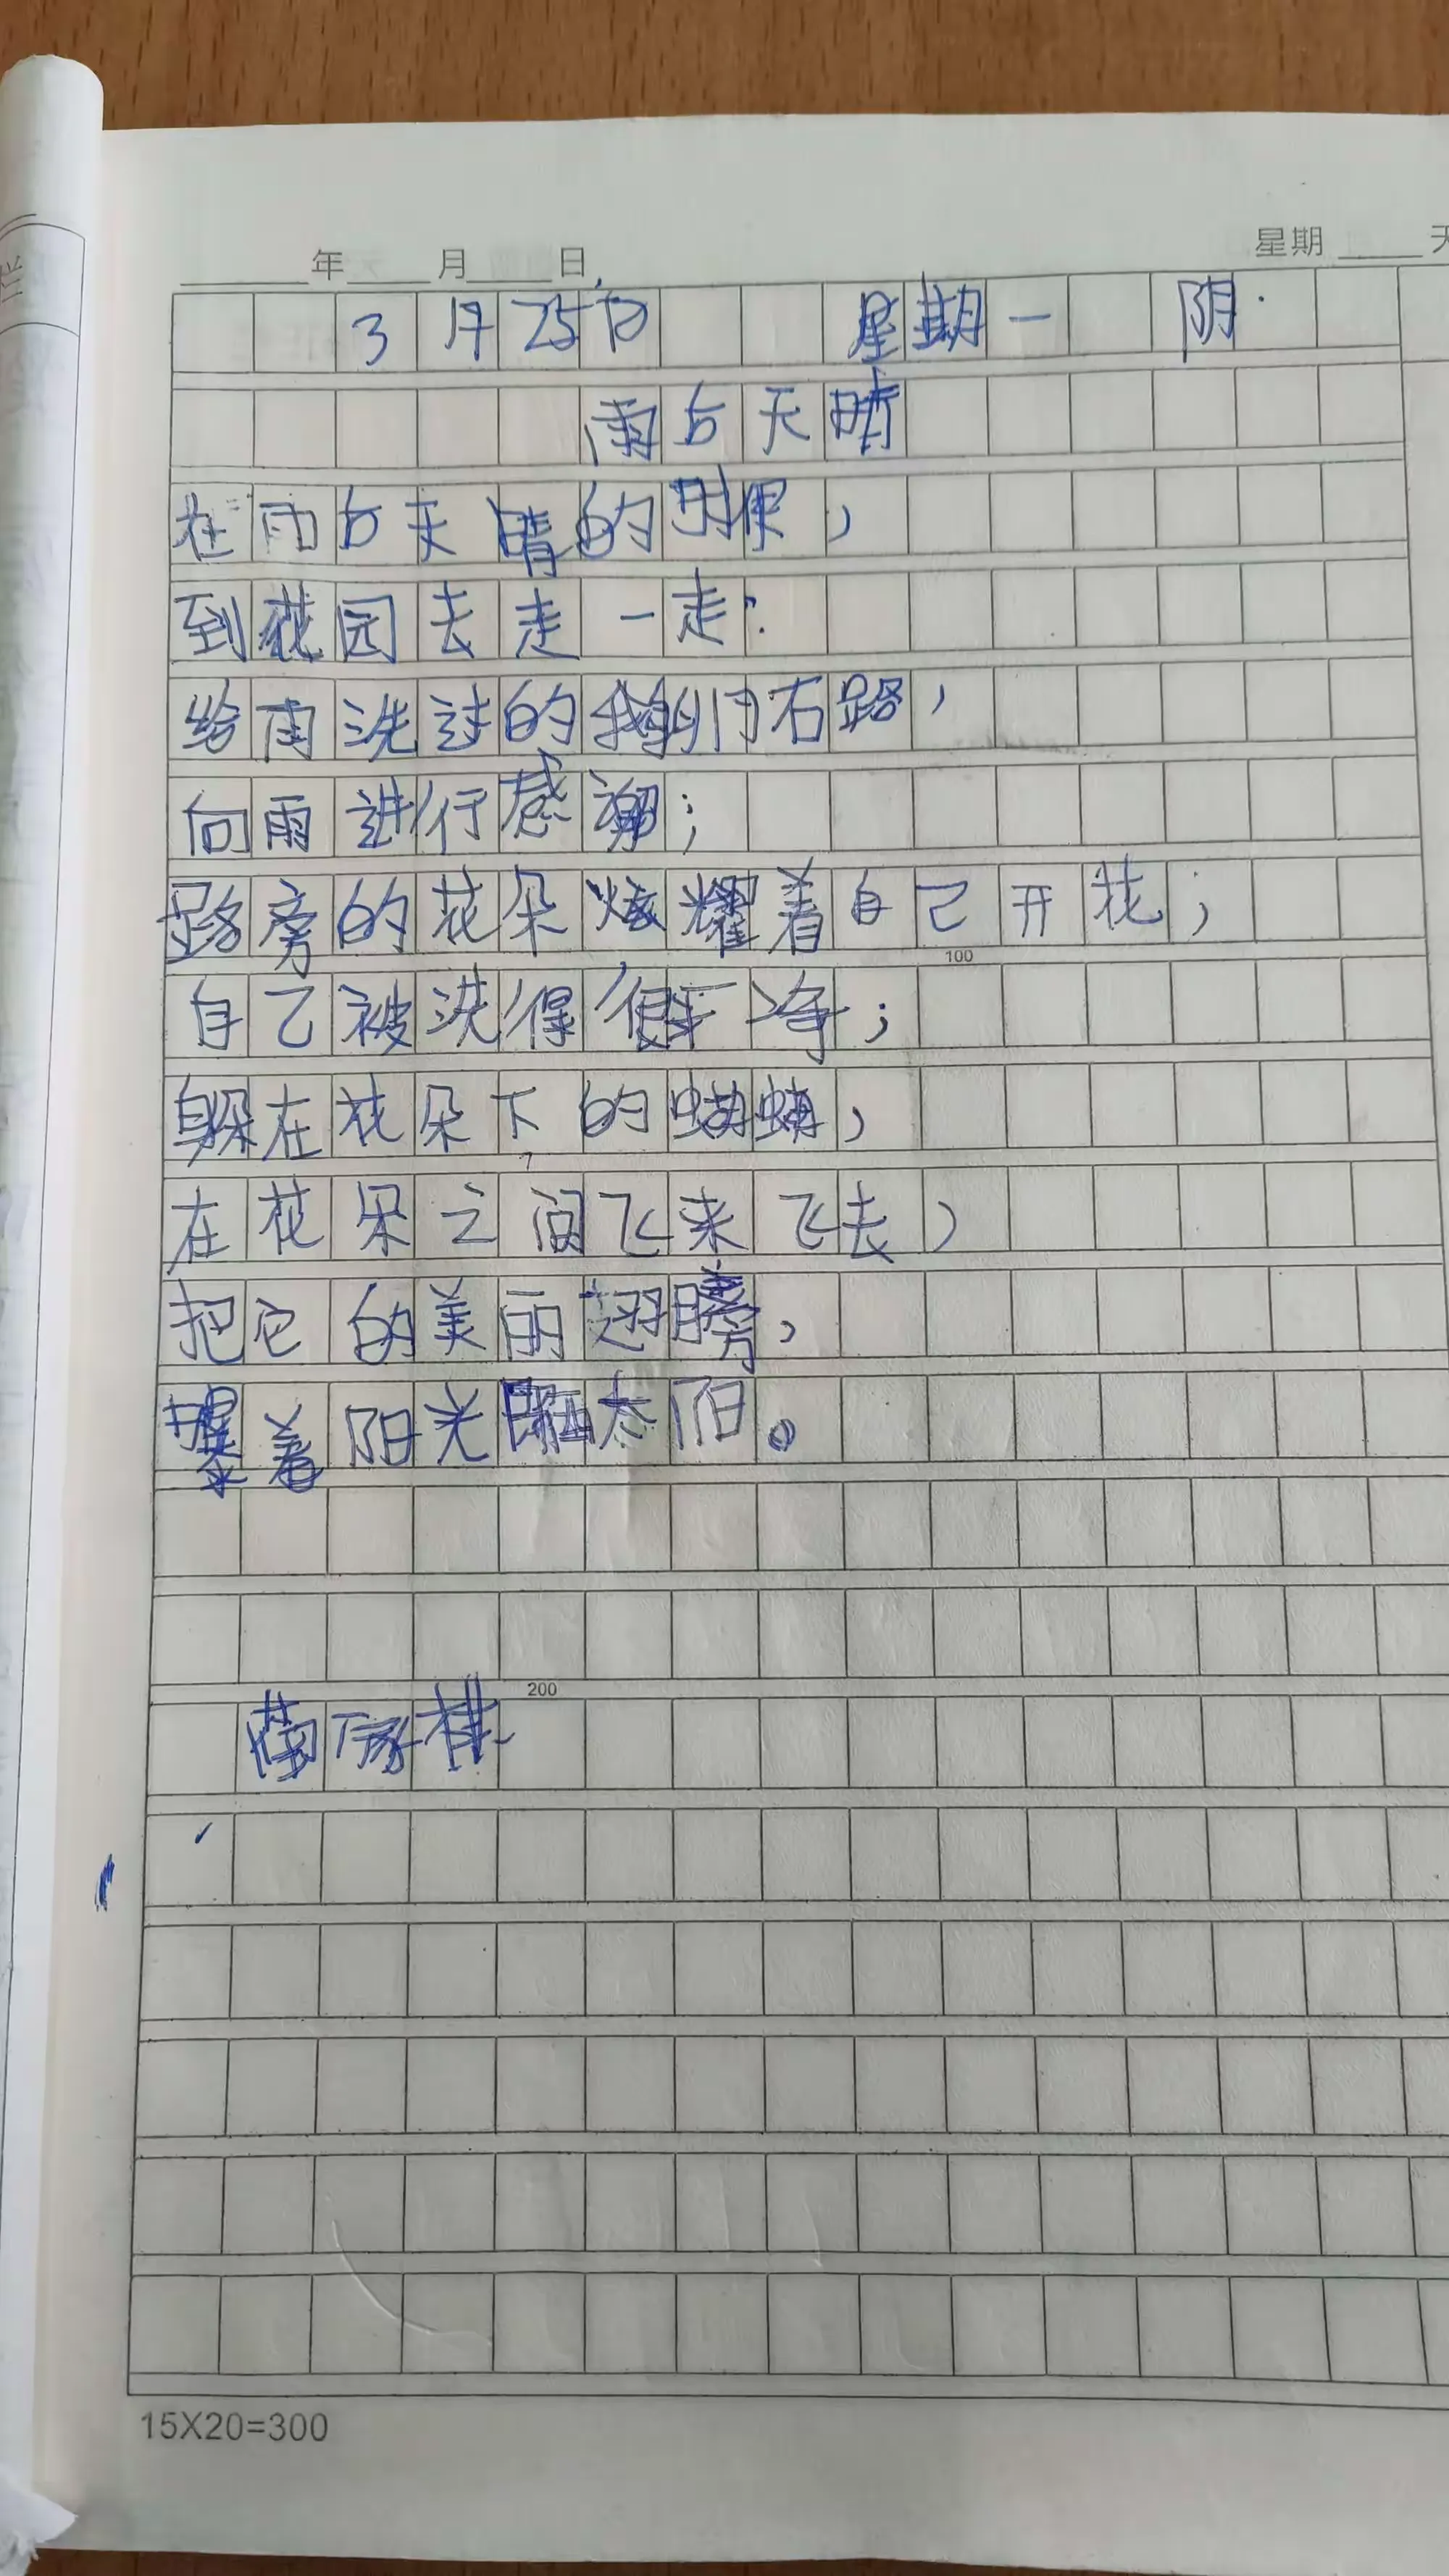 年 月 日 星期 天
3月25日 星期一 阴
雨后天晴
在雨后天晴的时候,
到花园去走一走:
给雨洗过的鹅卵石路,
向雨进行感谢;
路旁的花朵炫耀着自己开花;
自己被洗得很干净;
躲在花朵下的蝴蝶,
在花朵之间飞来飞去,
把它的美丽翅膀,
曝着阳光晒太阳。
100
200
15X20=300